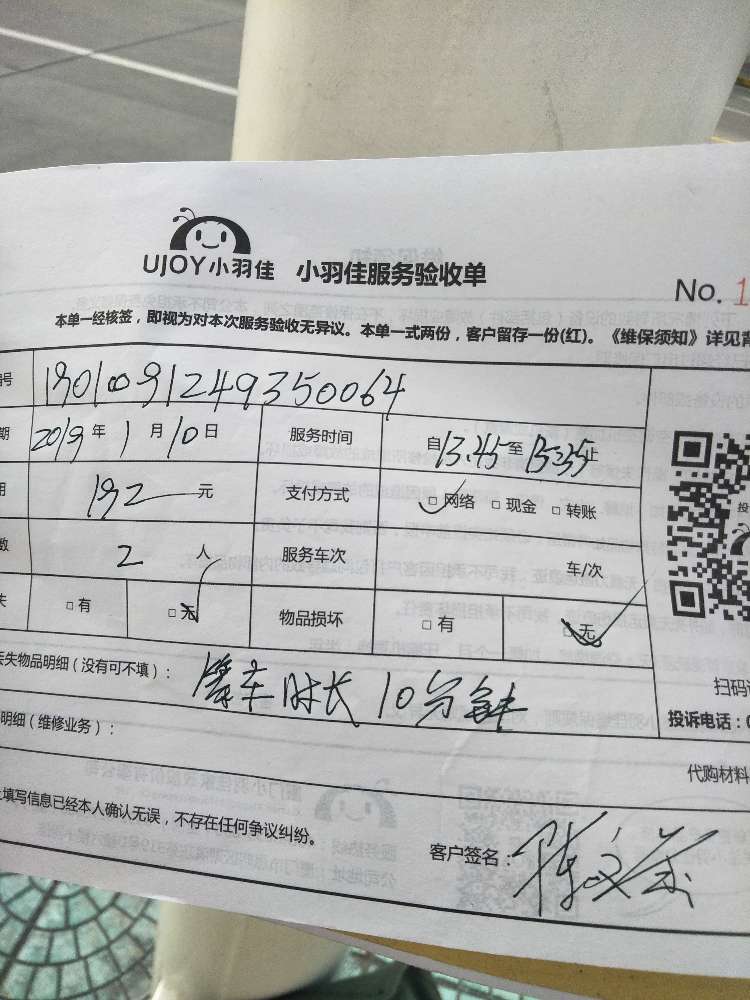 UJOY小羽佳 小羽佳服务验收单
No. 1
本单一经核签，即视为对本次服务验收无异议。本单一式两份，客户留存一份(红)。《维保须知》详见背
号 19010891249350064
期 2019 年 1 月 10 日 服务时间 自 13:45 至 15:35 止
用 192 元 支付方式 □网络 □现金 □转账
数 2 人 服务车次 车/次
失 □有 □无 物品损坏 □有 □无
丢失物品明细（没有可不填）： 等车时长10分钟
明细（维修业务）：
扫码
投诉电话：0
代购材料
填写信息已经本人确认无误，不存在任何争议纠纷。
客户签名：陈